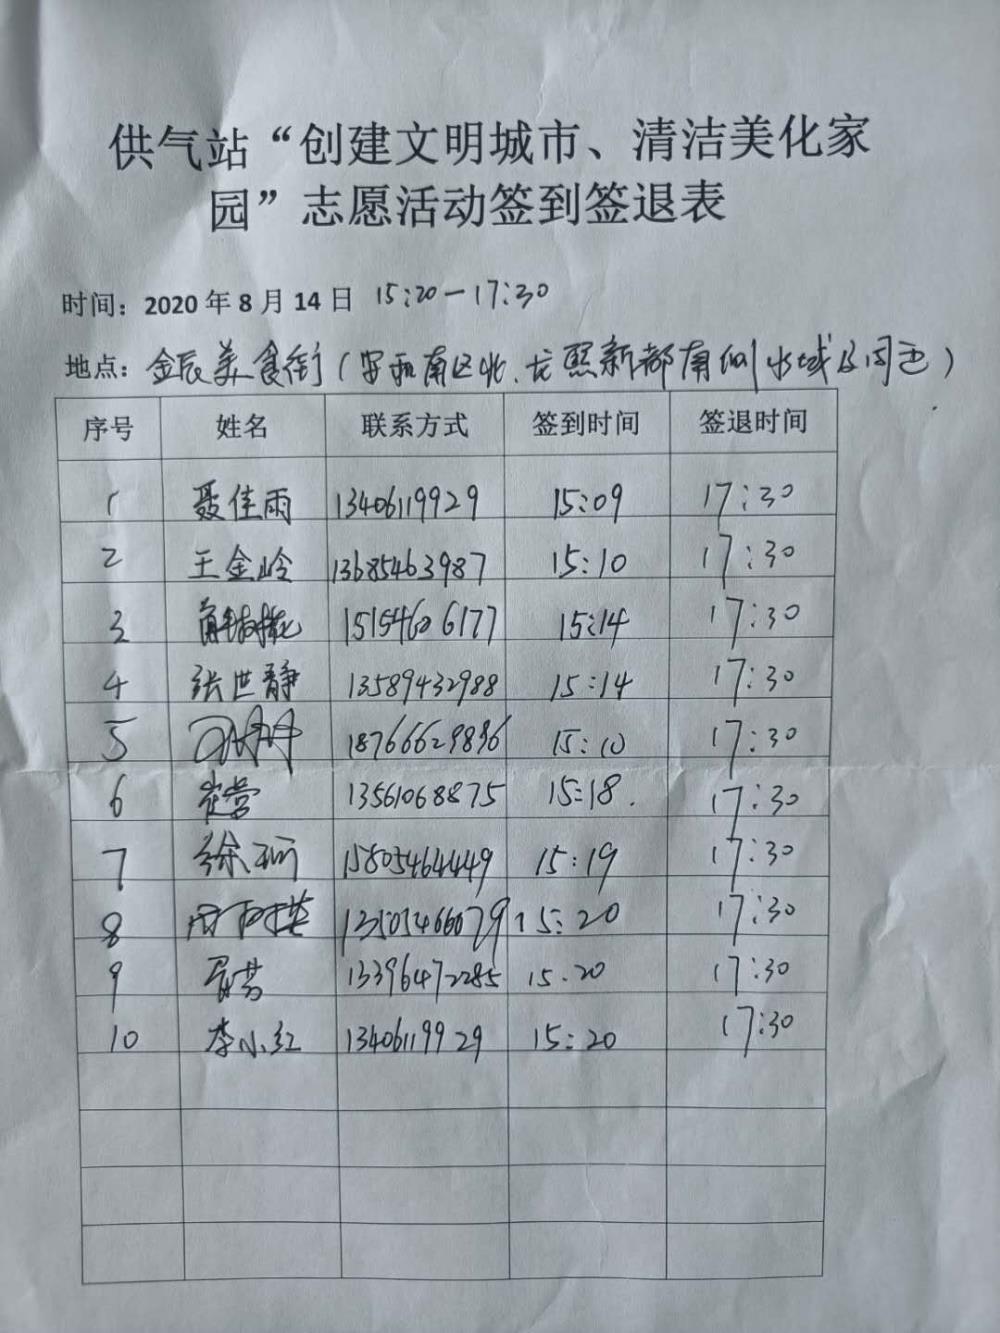 供气站“创建文明城市、清洁美化家
园”志愿活动签到签退表
时间：2020年8月14日 15:20—17:30
地点：金辰美食街（安和南区北、龙熙新都南侧水域及周边）
序号 姓名 联系方式 签到时间 签退时间
1 聂佳雨 13406119929 15:09 17:30
2 王金岭 13685463987 15:10 17:30
3 15154606177 15:14 17:30
4 张世静 13589432988 15:14 17:30
5 18766629896 15:10 17:30
6 崔营 13561068875 15:18. 17:30
7 徐珂 15805464449 15:19 17:30
8 13505466079 15:20 17:30
9 13396472285 15.20 17:30
10 李小红 13406119929 15:20 17:30